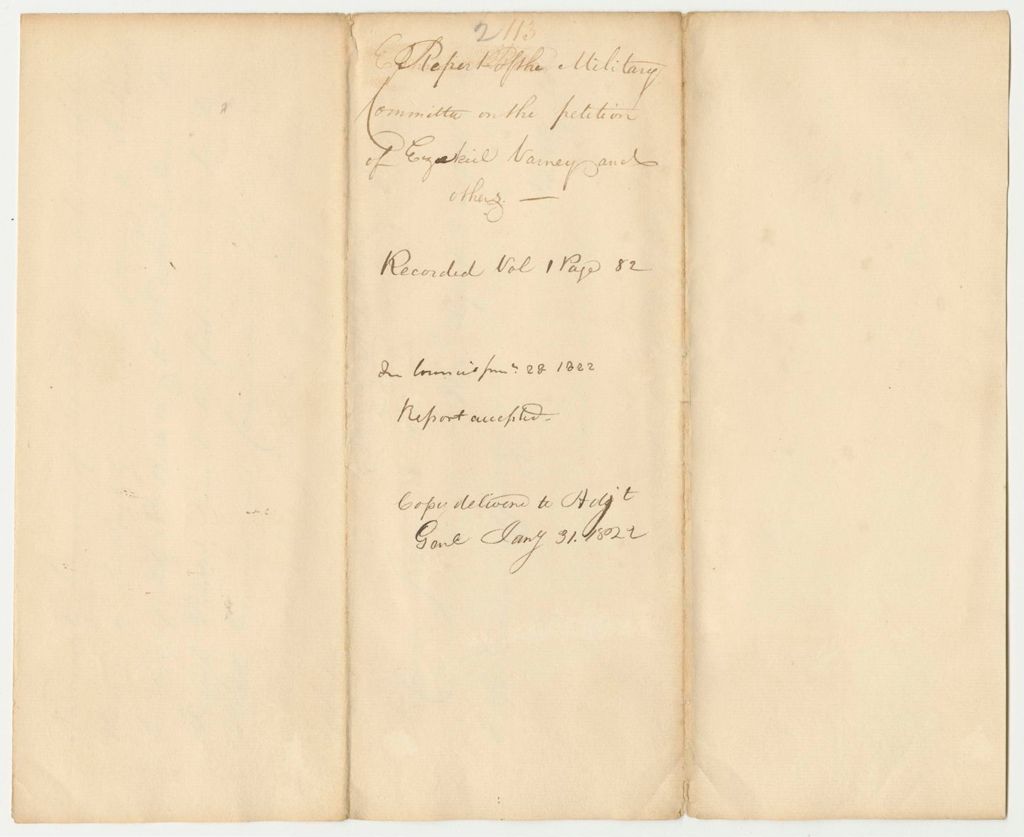 2 113
Report of the Military
Committee on the petition
of Ezekiel Varney and
others. —
Recorded Vol 1 Page 82
In Council Jany. 28 1822
Report accepted.
Copy delivered to Adjt
Genl Jany 31. 1822